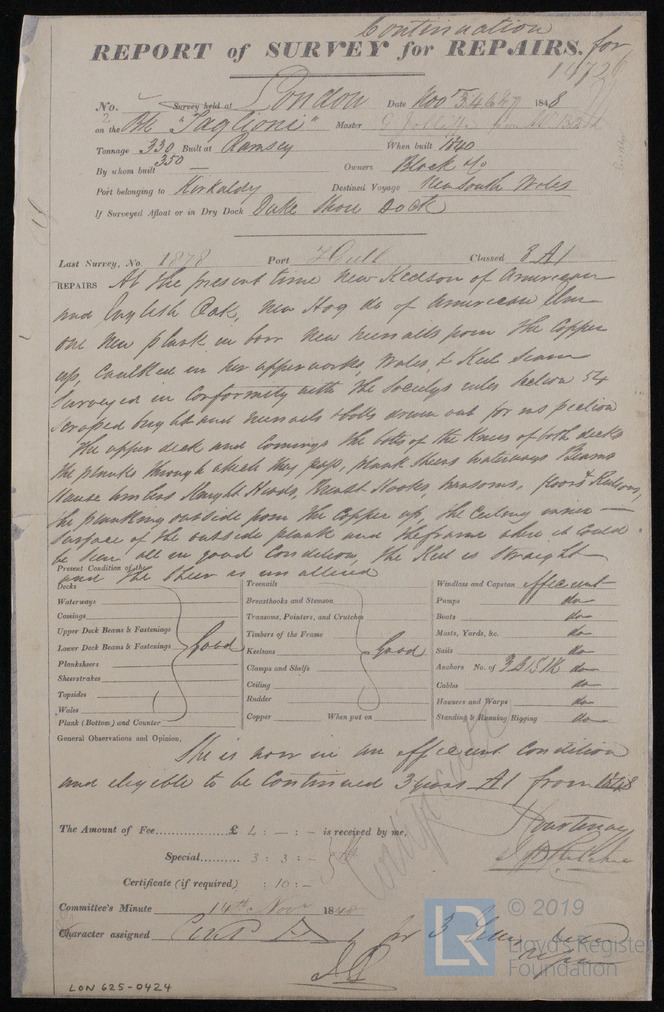 Continuation
REPORT of SURVEY for REPAIRS. for
No. Survey held at London Date Nov 3 4 6 & 7 1848
on the Bk "Taglioni" Master
Tonnage 330 Built at Ramsey When built 1840
350
By whom built Owners Black & Co
Port belonging to Kirkaldy Destined Voyage New South Wales
If Surveyed Afloat or in Dry Dock Duke Shore Dock
Last Survey, No. 1878 Port Hull Classed 8 A1
REPAIRS At the present time New Keelson of American
and English Oak, New Hog do of American Elm
one New plank in bow New treenails from the Copper
up, Caulked in her upperworks, Wales, & Keel Seam
Surveyed in Conformity with the Societys rules Section 54
Scraped bright and treenails & bolts driven out for inspection
The upper deck and Comings the bolts of the Knees of both decks
the planks through which they pass, plank sheers waterways Beams
Hause timbers Knight Heads, Breast Hooks, transoms, floors & Keelsons,
the planking outside from the Copper up, the Ceiling inner
Surface of the outside plank and the frame where it could
be seen all in good Condition, the Keel is Straight
and the Sheer is un altered
Present Condition of the
Decks
Waterways
Comings
Upper Deck Beams & Fastenings
Lower Deck Beams & Fastenings Good
Planksheers
Sheerstrakes
Topsides
Wales
Plank (Bottom) and Counter
Treenails
Breasthooks and Stemson
Transoms, Pointers, and Crutches
Timbers of the Frame
Keelsons Good
Clamps and Shelfs
Ceiling
Rudder
Copper When put on
Windlass and Capstan efficient
Pumps do
Boats do
Masts, Yards, &c. do
Sails do
Anchors No. of 3 B 1 S 1 K do
Cables do
Hawsers and Warps do
Standing & Running Rigging do
General Observations and Opinion,
She is now in an efficient Condition
and elegible to be Continued 3 years A1 from 1848
Courtenay
The Amount of Fee £ 4 : - : - is received by me,
Special 3 : 3 : -
Certificate (if required) : 10 : -
Committee's Minute 14th Novr 1848
Character assigned Contd A 1 for 3 Years
LON 625-0424
© 2019
LR
Lloyd's Register
Foundation